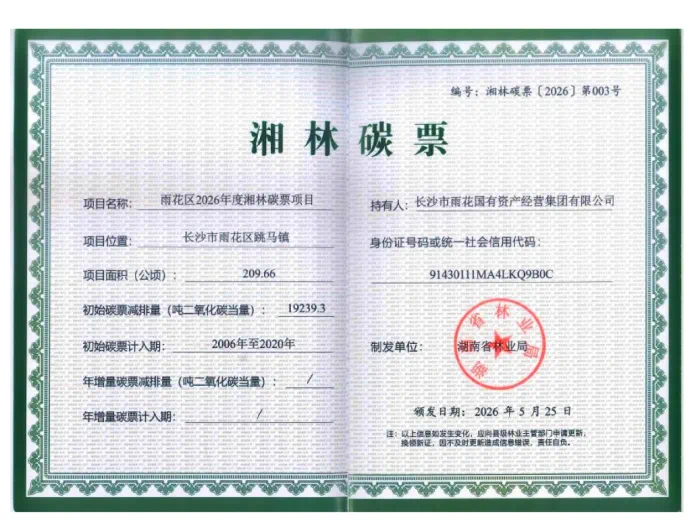 编号：湘林碳票〔2026〕第003号
湘林碳票
项目名称：雨花区2026年度湘林碳票项目
项目位置：长沙市雨花区跳马镇
项目面积（公顷）：209.66
初始碳票减排量（吨二氧化碳当量）：19239.3
初始碳票计入期：2006年至2020年
年增量碳票减排量（吨二氧化碳当量）：/
年增量碳票计入期：/
持有人：长沙市雨花国有资产经营集团有限公司
身份证号码或统一社会信用代码：
91430111MA4LKQ9B0C
制发单位：湖南省林业局
湖南省林业局
颁发日期：2026年5月25日
注：以上信息如发生变化，应向县级林业主管部门申请更新，
换领新证，因不及时更新造成信息错误，责任自负。